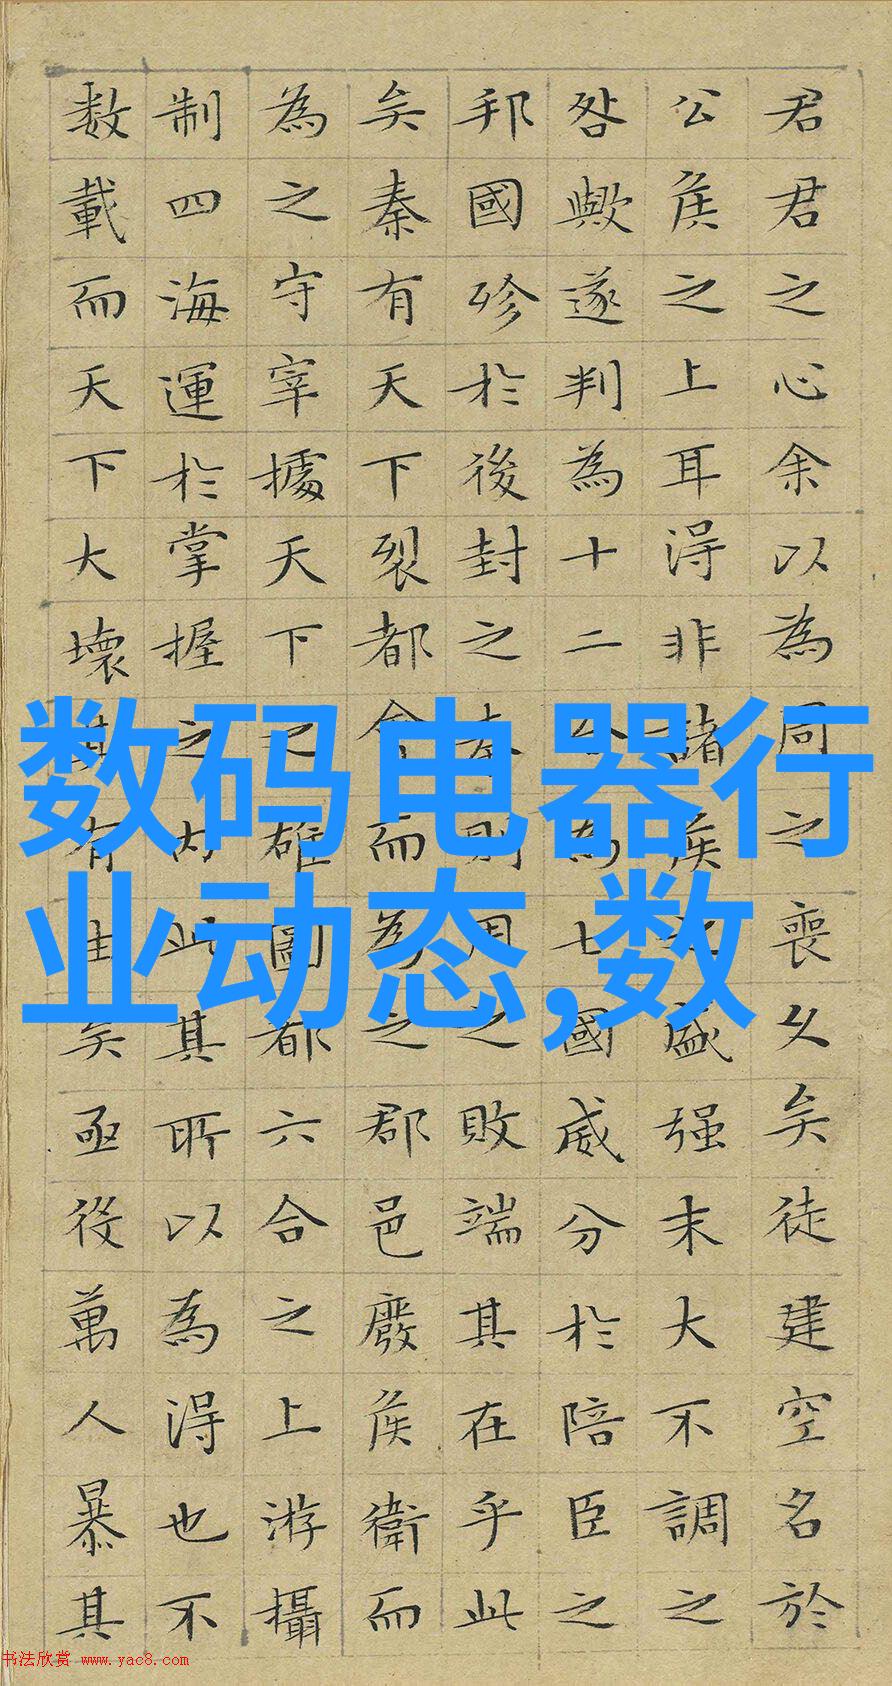 君君之心余以為周之喪久矣徒建空名於
公侯之上耳得非諸侯之盛强末大不調之
咎歟遂判為十二合為七國威分於陪臣之
邦國殄於後封之秦則周之敗端其在乎此
矣秦有天下裂都會而為之郡邑廢侯衛而
為之守宰據天下之雄圖都六合之上游攝
制四海運於掌握之内此其所以為得也不
数載而天下大壞其有由矣亟役萬人暴其
数码电器行
业动态,数
书法欣赏 www.yac8.com